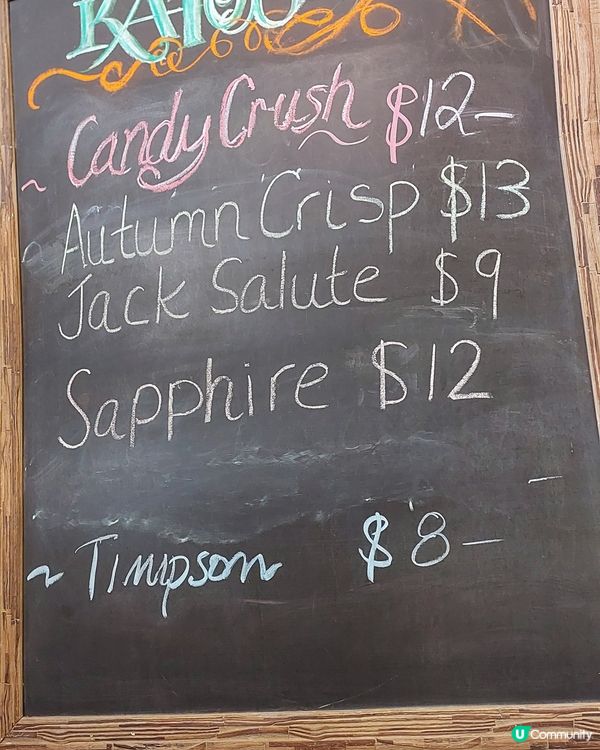 ~ Candy Crush $12-
Autumn Crisp $13
Jack Salute $9
Sapphire $12
~ Timpson $8-
U Community